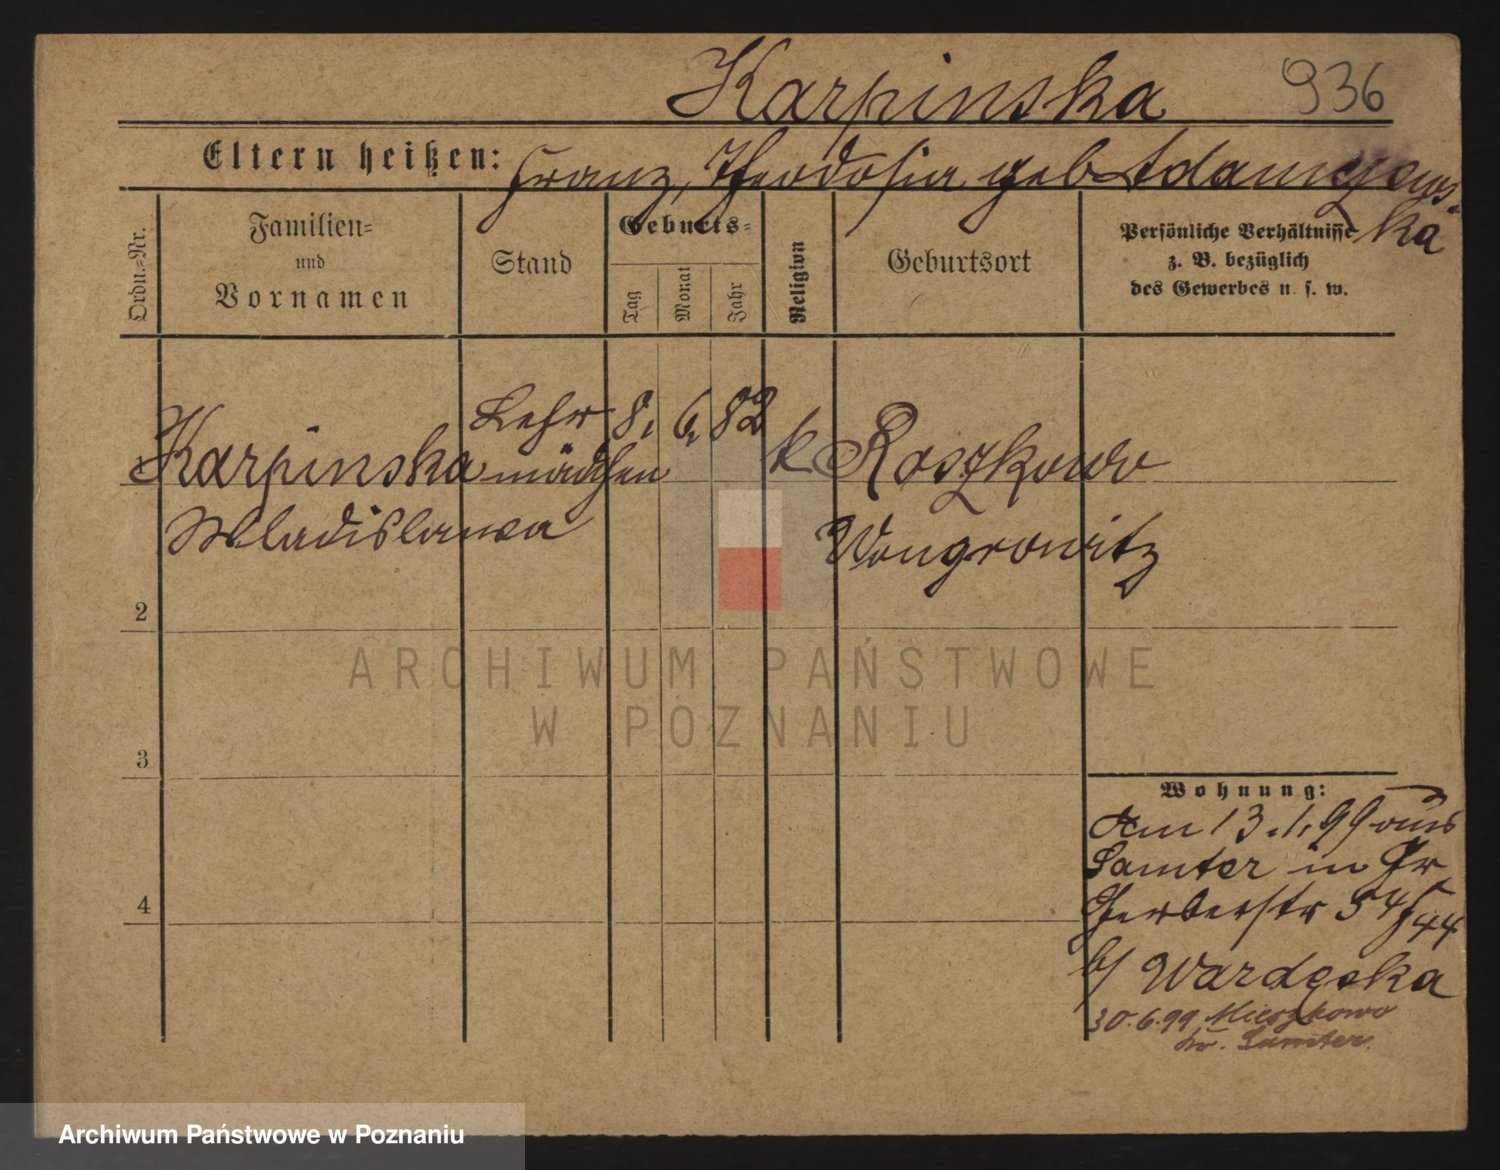 Karpinska 936
Eltern heißen: Franz, Theodosia geb Adamczews-
ka
Ordn.-Nr.
Familien-
und
Vornamen
Stand
Geburts-
Tag
Monat
Jahr
Religion
Geburtsort
Persönliche Verhältnisse
z. B. bezüglich
des Gewerbes u. s. w.
Karpinska Lehr 8. 6. 82 k Roszkowo
mädchen
Wladislawa Wongrowitz
2
3
4
ARCHIWUM PAŃSTWOWE
W POZNANIU
Wohnung:
Am 13.1.99 aus
Samter in Gr
Gerberstr 54/44
b/
30.6.99 Mieszkowo
Kr. Samter.
Archiwum Państwowe w Poznaniu